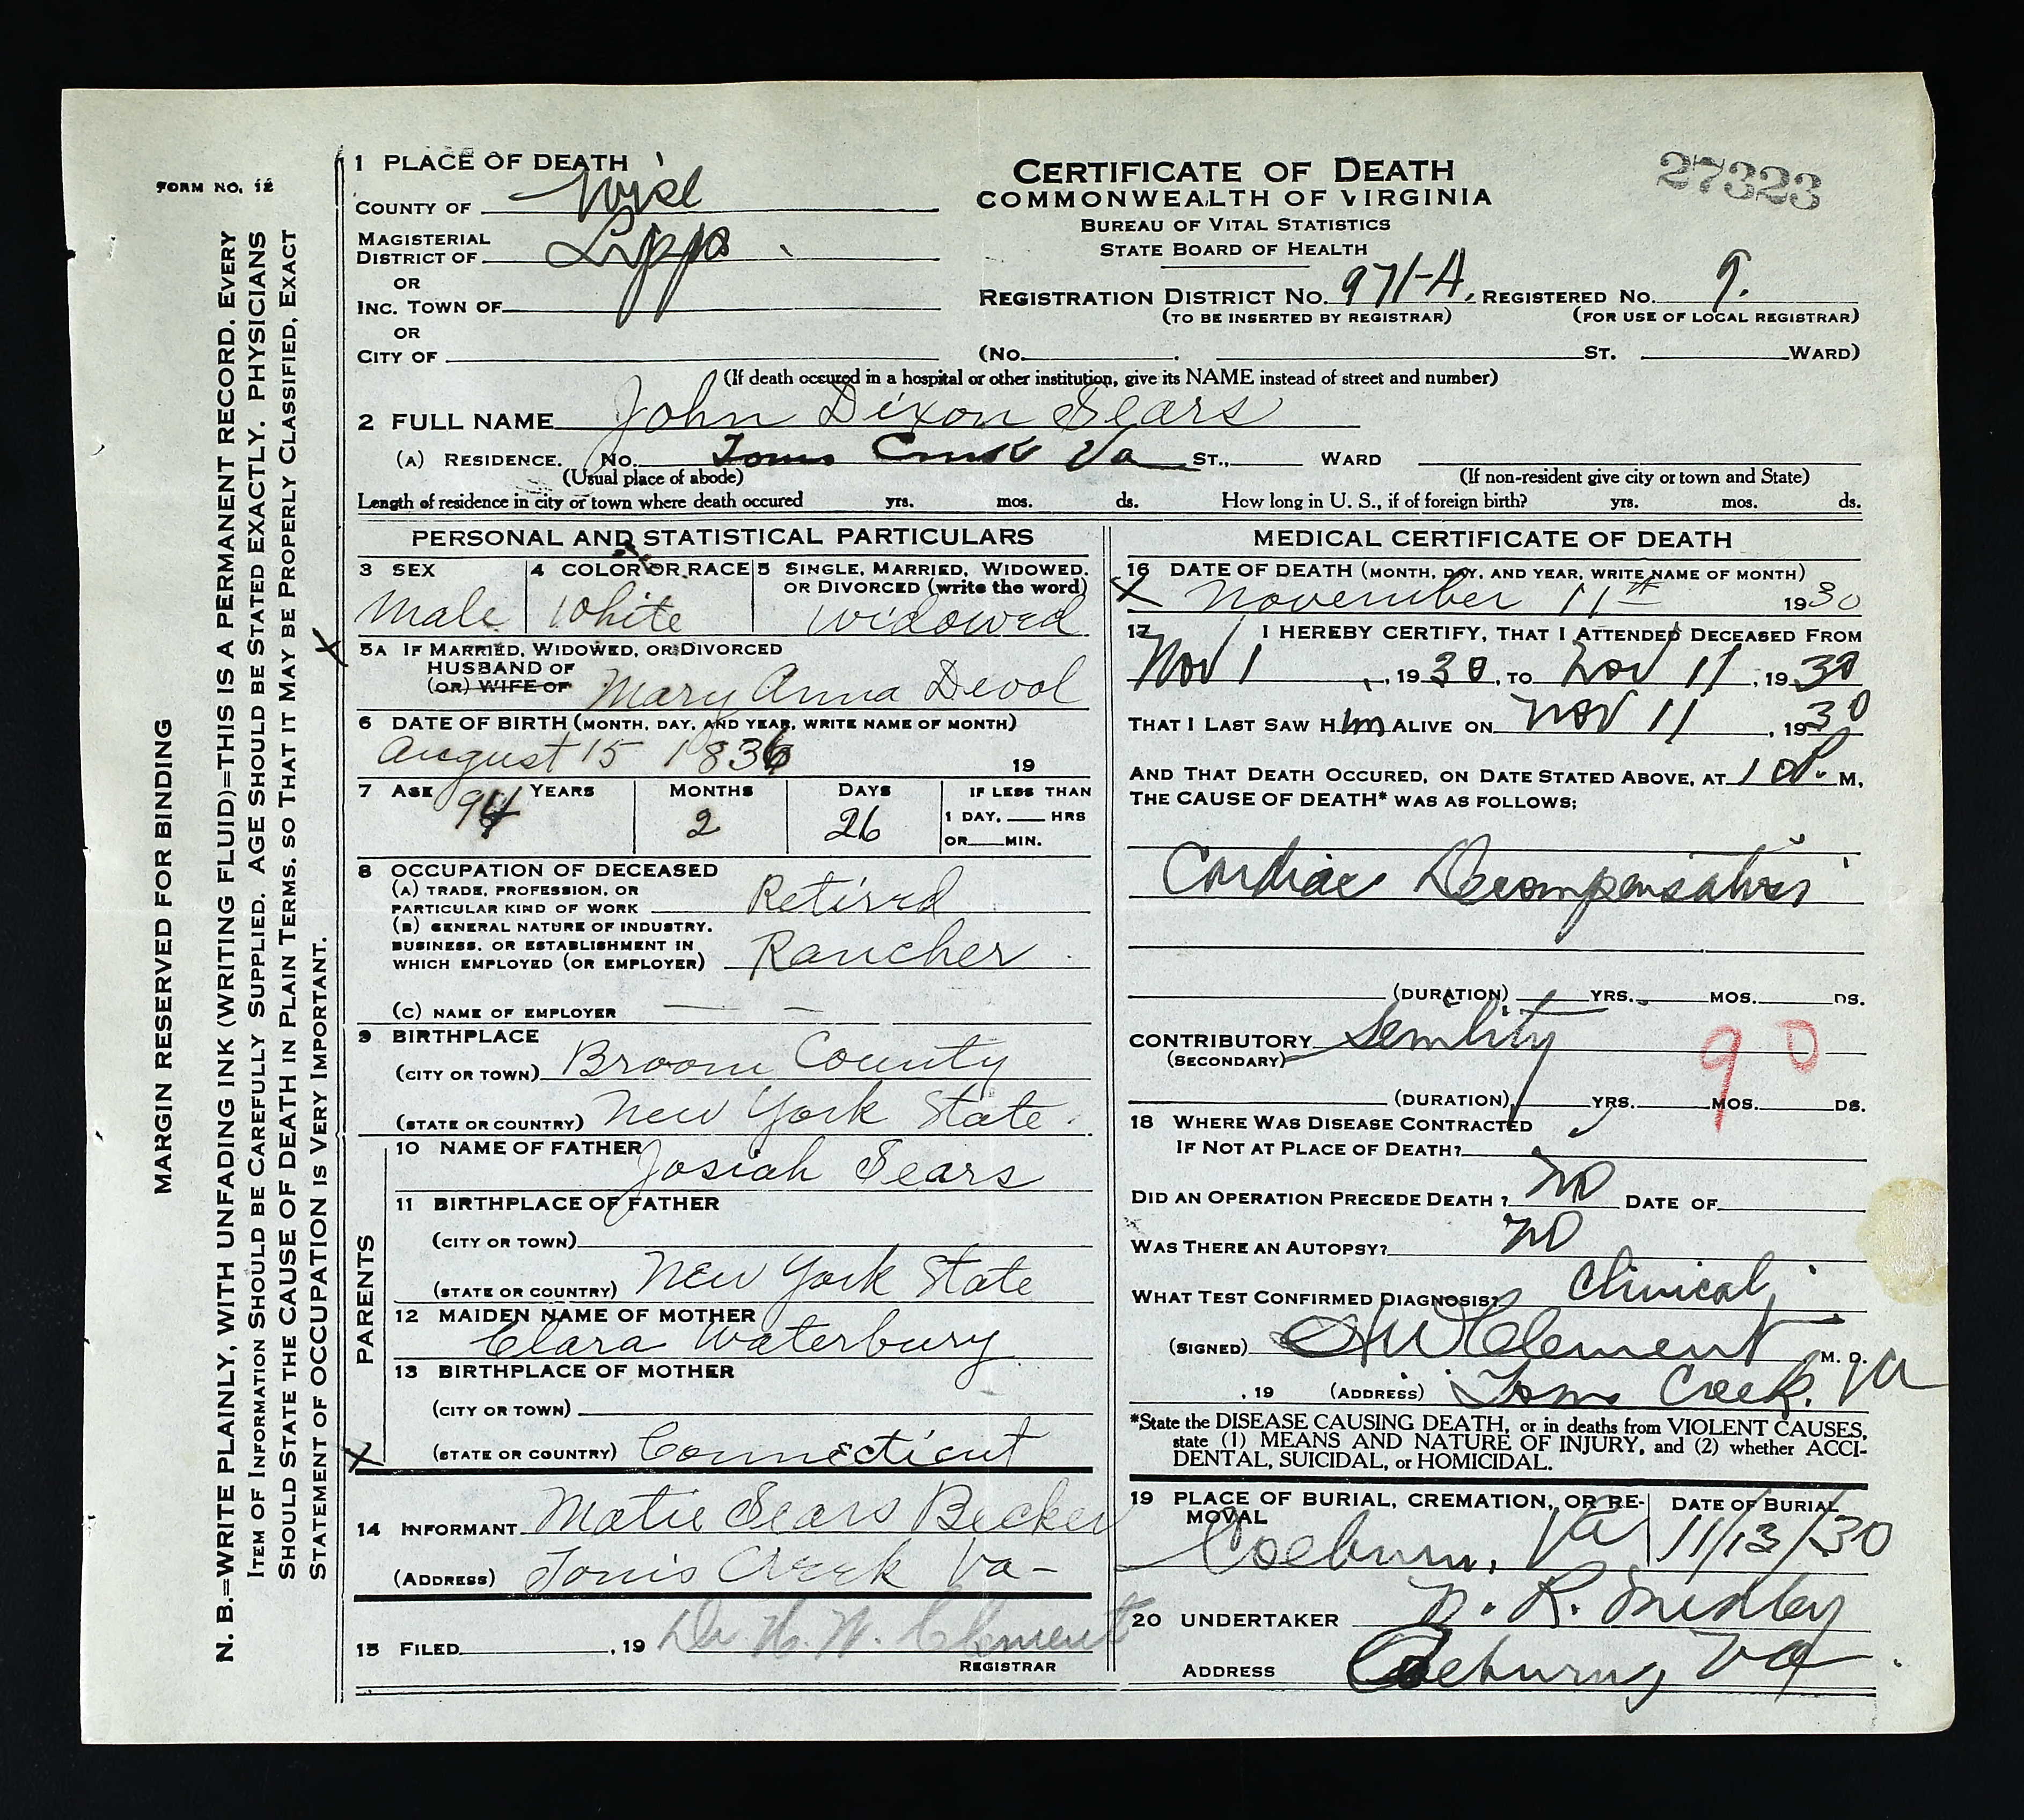 FORM NO. 12
MARGIN RESERVED FOR BINDING
N. B.=WRITE PLAINLY, WITH UNFADING INK (WRITING FLUID)=THIS IS A PERMANENT RECORD. EVERY
ITEM OF INFORMATION SHOULD BE CAREFULLY SUPPLIED. AGE SHOULD BE STATED EXACTLY. PHYSICIANS
SHOULD STATE THE CAUSE OF DEATH IN PLAIN TERMS, SO THAT IT MAY BE PROPERLY CLASSIFIED, EXACT
STATEMENT OF OCCUPATION IS VERY IMPORTANT.
1 PLACE OF DEATH
COUNTY OF Wise
MAGISTERIAL
DISTRICT OF Lipps
OR
INC. TOWN OF
OR
CITY OF
CERTIFICATE OF DEATH
COMMONWEALTH OF VIRGINIA
BUREAU OF VITAL STATISTICS
STATE BOARD OF HEALTH
27323
REGISTRATION DISTRICT NO. 971-A, REGISTERED NO. 9.
(TO BE INSERTED BY REGISTRAR) (FOR USE OF LOCAL REGISTRAR)
(NO. ST. WARD)
(If death occured in a hospital or other institution, give its NAME instead of street and number)
2 FULL NAME John Dixon Sears
(A) RESIDENCE. NO. Toms Creek Va ST., WARD
(Usual place of abode) (If non-resident give city or town and State)
Length of residence in city or town where death occured yrs. mos. ds. How long in U. S., if of foreign birth? yrs. mos. ds.
PERSONAL AND STATISTICAL PARTICULARS
3 SEX
Male
4 COLOR OR RACE
White
5 SINGLE, MARRIED, WIDOWED,
OR DIVORCED (write the word)
widowed
5A IF MARRIED, WIDOWED, OR DIVORCED
HUSBAND OF
(OR) WIFE OF Mary Anna Devol
6 DATE OF BIRTH (MONTH, DAY, AND YEAR, WRITE NAME OF MONTH)
August 15 1836 19
7 AGE 94 YEARS
MONTHS
2
DAYS
26
IF LESS THAN
1 DAY, HRS
OR MIN.
8 OCCUPATION OF DECEASED
(A) TRADE, PROFESSION, OR
PARTICULAR KIND OF WORK Retired
(B) GENERAL NATURE OF INDUSTRY,
BUSINESS, OR ESTABLISHMENT IN
WHICH EMPLOYED (OR EMPLOYER) Rancher
(C) NAME OF EMPLOYER — —
9 BIRTHPLACE
(CITY OR TOWN) Broom County
(STATE OR COUNTRY) New York State.
PARENTS
10 NAME OF FATHER Josiah Sears
11 BIRTHPLACE OF FATHER
(CITY OR TOWN)
(STATE OR COUNTRY) New York State
12 MAIDEN NAME OF MOTHER
Clara Waterbury
13 BIRTHPLACE OF MOTHER
(CITY OR TOWN)
(STATE OR COUNTRY) Connecticut
14 INFORMANT Matie Sears Becker
(ADDRESS) Toms Creek Va-
15 FILED , 19 Dr H. W. Clement
REGISTRAR
MEDICAL CERTIFICATE OF DEATH
16 DATE OF DEATH (MONTH, DAY, AND YEAR, WRITE NAME OF MONTH)
X November 11th 1930
17 I HEREBY CERTIFY, THAT I ATTENDED DECEASED FROM
Nov 1, 1930, TO Nov 11, 1930
THAT I LAST SAW HIM ALIVE ON Nov 11, 1930
AND THAT DEATH OCCURED, ON DATE STATED ABOVE, AT 10 P. M,
THE CAUSE OF DEATH* WAS AS FOLLOWS;
Cardiac Decompensation
(DURATION) YRS. MOS. DS.
CONTRIBUTORY Senility
(SECONDARY)
90
(DURATION) YRS. MOS. DS.
18 WHERE WAS DISEASE CONTRACTED
IF NOT AT PLACE OF DEATH?
DID AN OPERATION PRECEDE DEATH? No DATE OF
WAS THERE AN AUTOPSY? No
WHAT TEST CONFIRMED DIAGNOSIS? Clinical
(SIGNED) HW Clement M. D.
, 19 (ADDRESS) Toms Creek, Va
*State the DISEASE CAUSING DEATH, or in deaths from VIOLENT CAUSES,
state (1) MEANS AND NATURE OF INJURY, and (2) whether ACCI-
DENTAL, SUICIDAL, or HOMICIDAL.
19 PLACE OF BURIAL, CREMATION, OR RE-
MOVAL
Coeburn, Va
DATE OF BURIAL
11/13/30
20 UNDERTAKER
ADDRESS Coeburn, Va